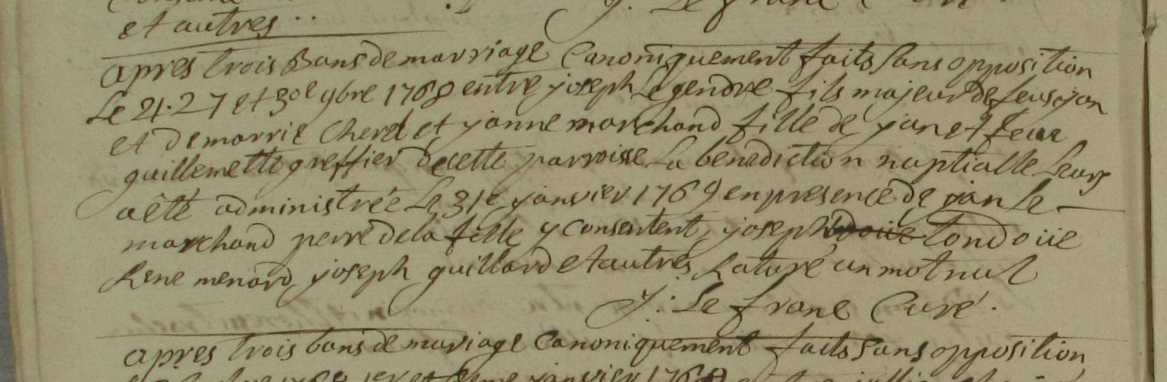 et autres..
J. Le franc
apres trois Bans de marriage Canoniquement faits Sans opposition
Le 21. 27 et 30e 9bre 1768 entre joseph Le gendre fils majeur de feu jan
et de marrie Cherel et janne marchand fille de jan et feue
guillemette greffier de cette parroisse La benediction nuptialle Leurs
a été administrée Le 31e janvier 1769 en presence de jan Le
marchand perre de la fille y consentent, joseph tondoüe
Rene menard, joseph guillard et autres, Raturé un mot nul
J: Le franc Curé.
apres trois bans de mariage Canoniquement faits Sans opposition
janvier 1769